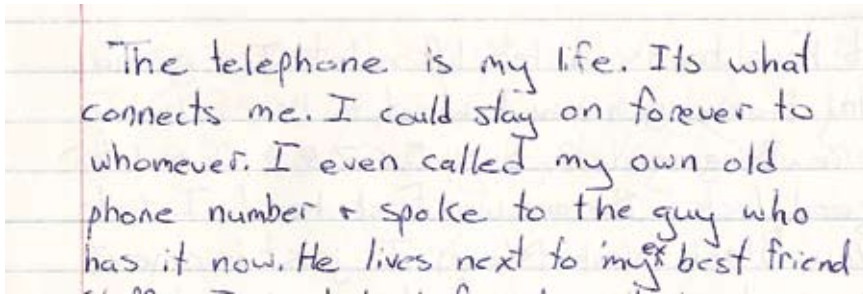 The telephone is my life. Its what
connects me. I could stay on forever to
whomever. I even called my own old
phone number + spoke to the guy who
has it now. He lives next to my ex best friend